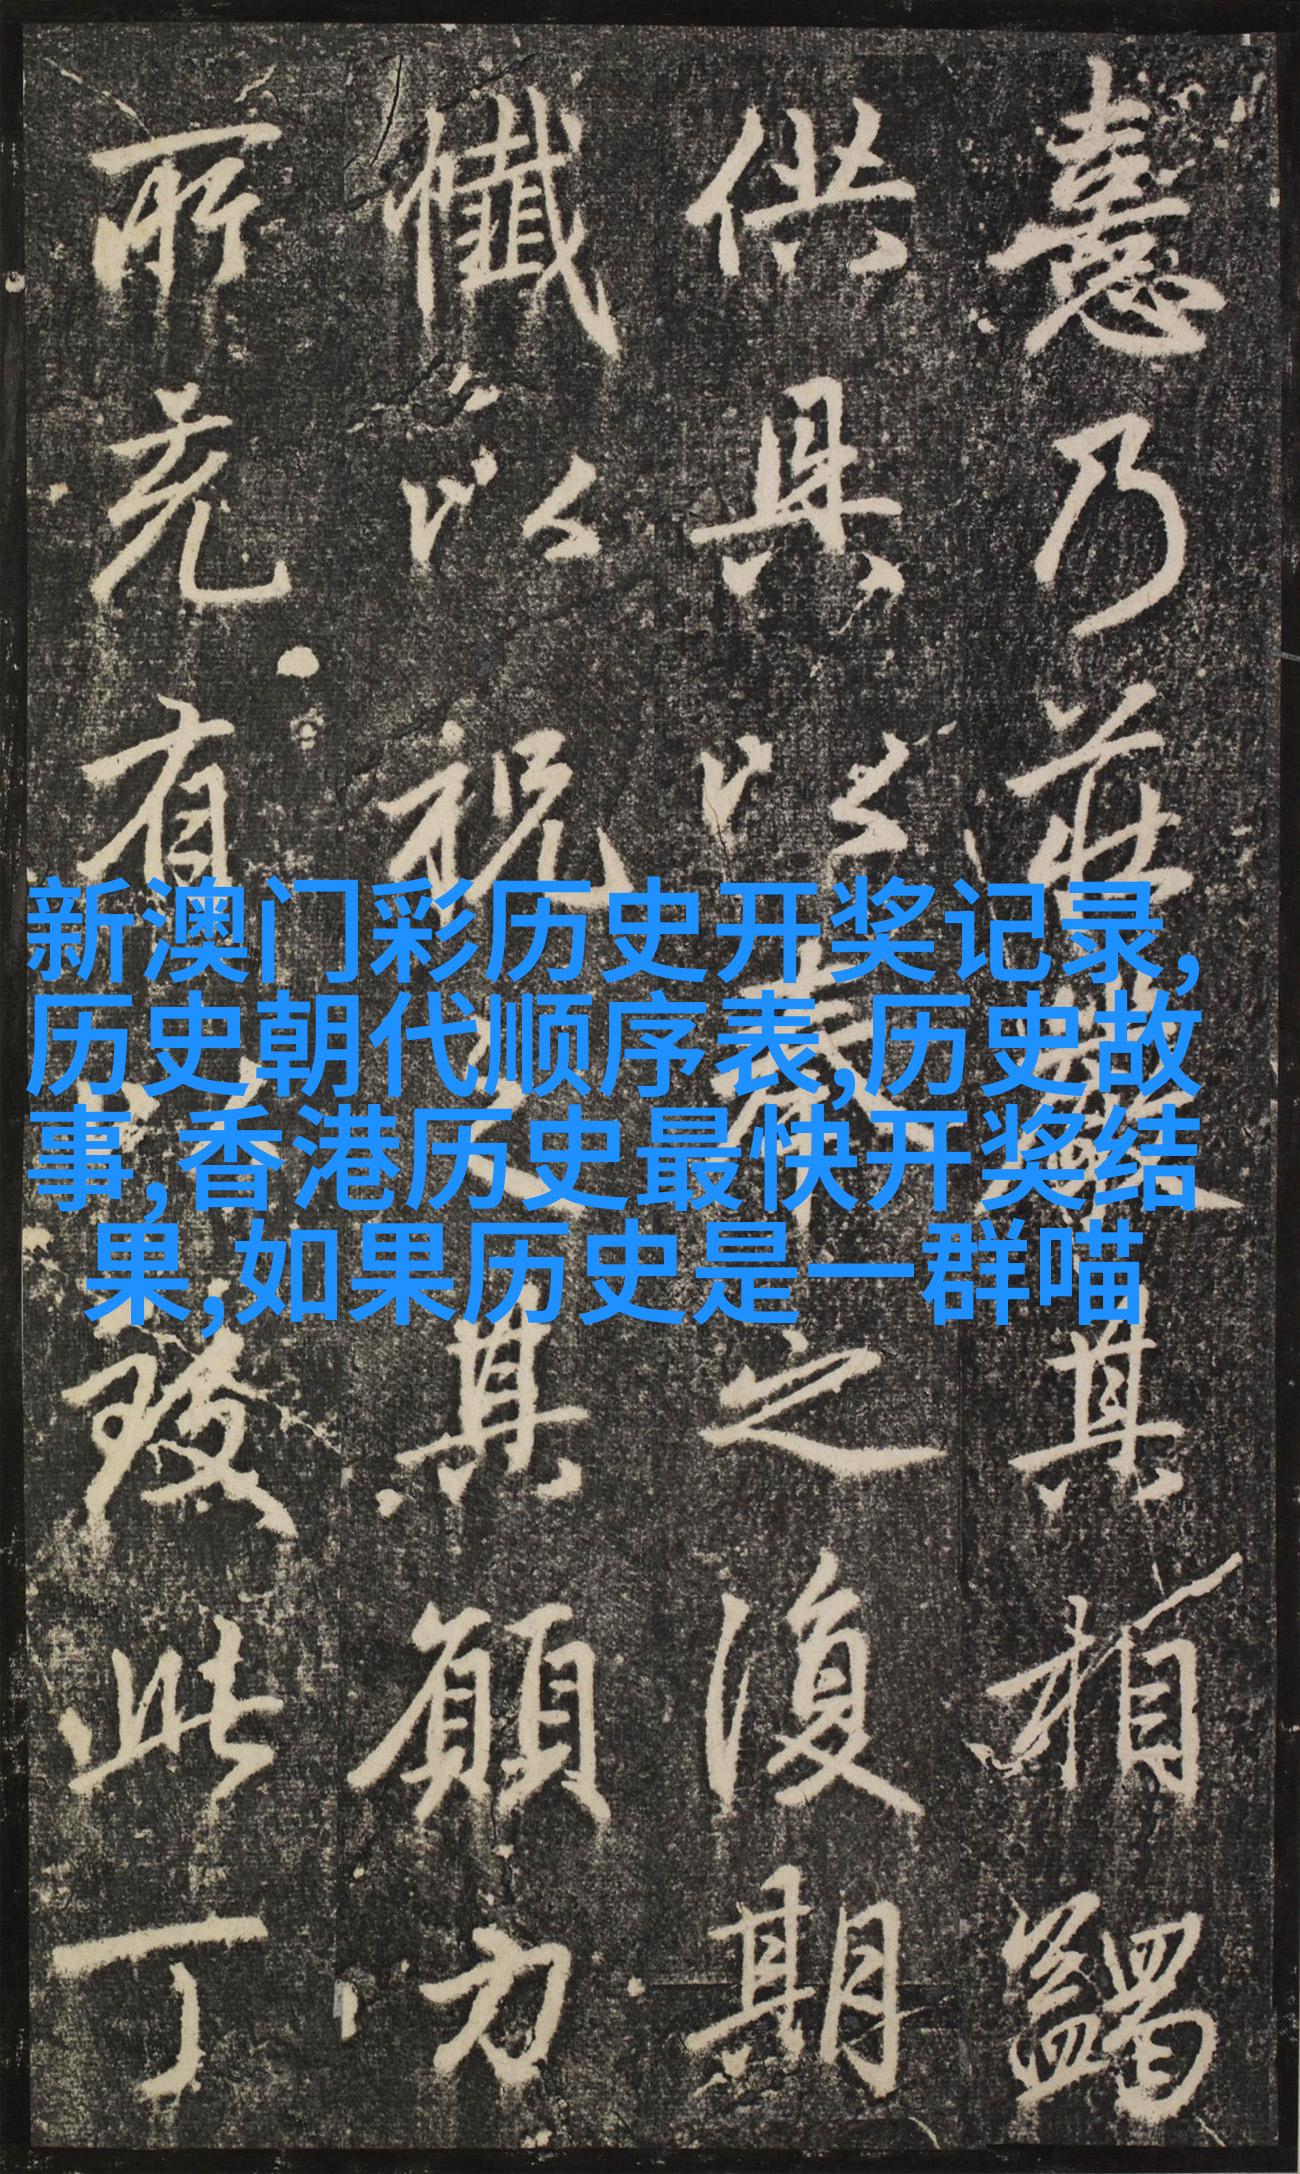 新澳门彩历史开奖记录,
历史朝代顺序表,历史故
事,香港历史最快开奖结
果,如果历史是一群喵
憙乃莊其相蠲
供具以奉之復期
懺以祝其願方
所羌有此丁